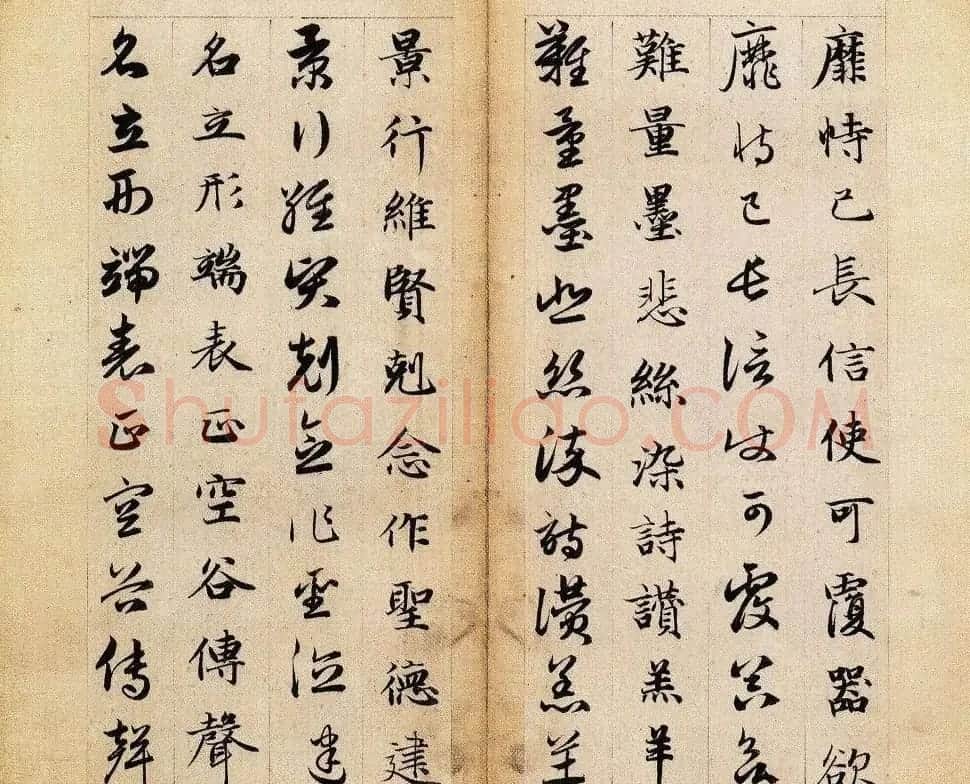 靡恃己長信使可覆器欲
靡恃己長信使可覆器欲
難量墨悲絲染詩讚羔羊
難量墨悲絲染詩讚羔羊
景行維賢剋念作聖德建
景行維賢剋念作聖德建
名立形端表正空谷傳聲
名立形端表正空谷傳聲
Shufaziliao.COM